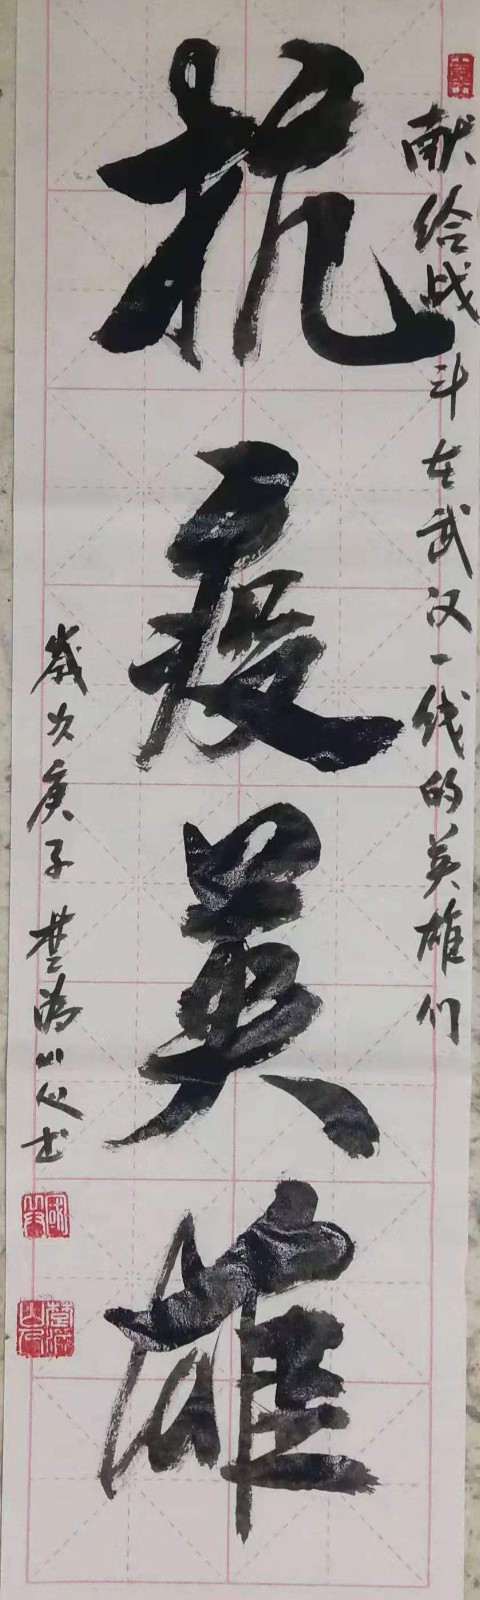 献给战斗在武汉一线的英雄们
抗疫英雄
岁次庚子楚鸿山人书